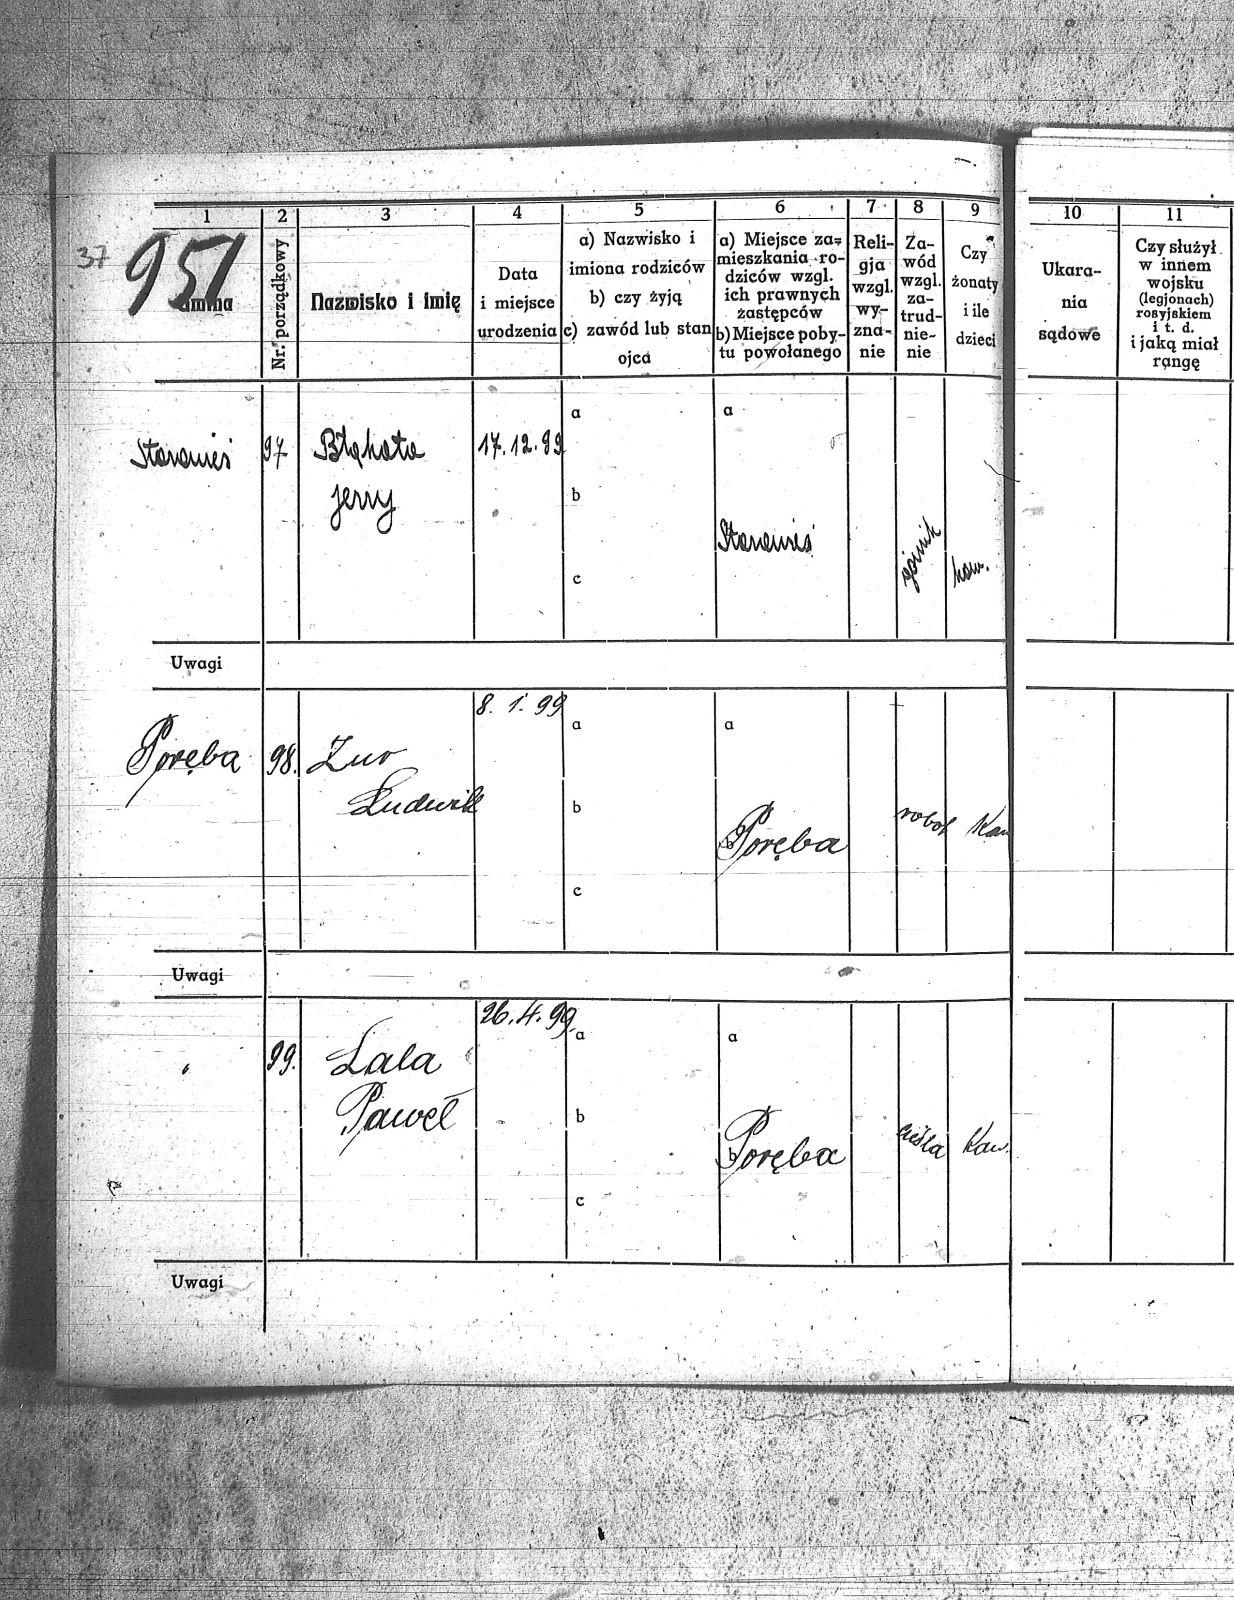 37
951
1 2 3 4 5 6 7 8 9 10 11
Gmina
Nr. porządkowy
Nazwisko i imię
Data
i miejsce
urodzenia
a) Nazwisko i
imiona rodziców
b) czy żyją
c) zawód lub stan
ojca
a) Miejsce za=
mieszkania ro-
dziców wzgl.
ich prawnych
zastępców
b) Miejsce poby-
tu powołanego
Reli-
gja
wzgl.
wy-
zna-
nie
Za-
wód
wzgl.
za-
trud-
nie-
nie
Czy
żonaty
i ile
dzieci
Ukara-
nia
sądowe
Czy służył
w innem
wojsku
(legjonach)
rosyjskiem
i t. d.
i jaką miał
rangę
a a
Starawieś 97. Błahata 17.12.99
Jerzy
b
Starawieś górnik kaw.
c
Uwagi
8.1.99
a a
Poręba 98. Żur
Ludwik
b
b Poręba robot Kaw
c
Uwagi
26.4.99.
a a
" 99. Lala
Paweł
b
b Poręba cieśla Kaw.
c
Uwagi